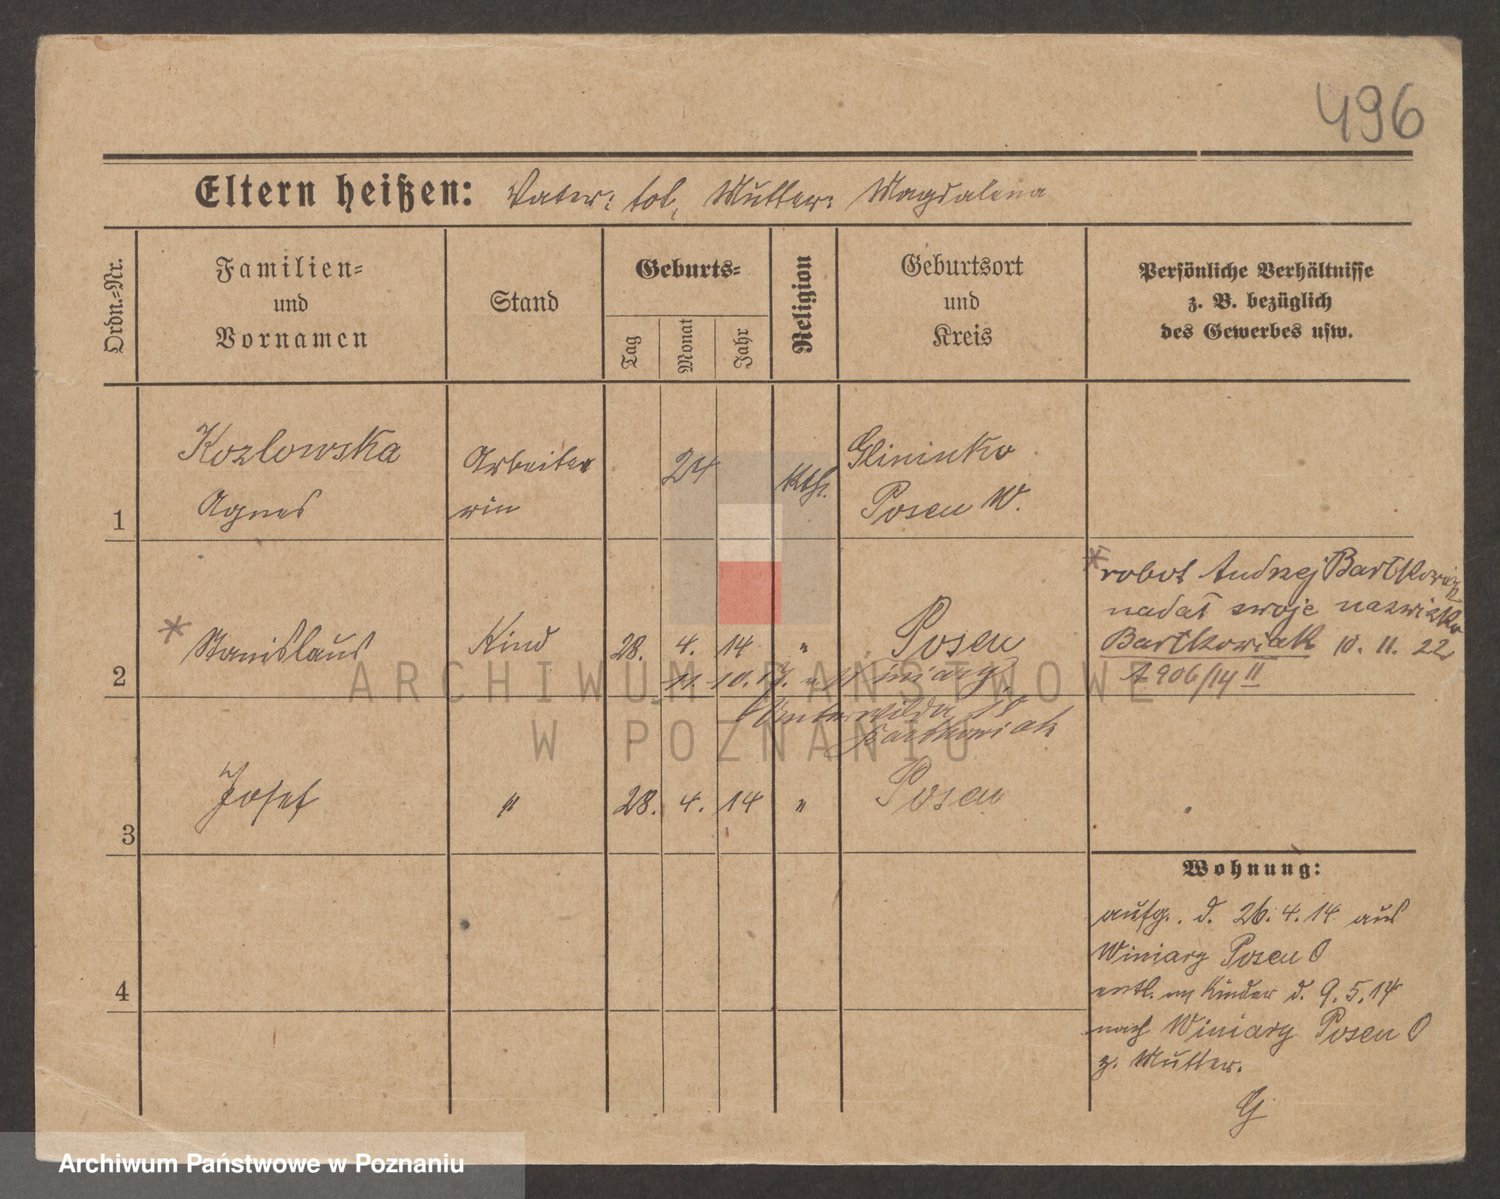 496
Eltern heißen: Vater: tot, Mutter: Magdalena
Ordn.-Nr.
Familien-
und
Vornamen
Stand
Geburts-
Tag
Monat
Jahr
Religion
Geburtsort
und
Kreis
Persönliche Verhältnisse
z. B. bezüglich
des Gewerbes usw.
1
Kozlowska
Agnes
Arbeite
rin
24
kth.
Glininko
Posen W.
2
* Stanislaus
Kind
28. 4. 14
"
Posen
11. 10. 17. Winiary
Unterwilda
Bartkowiak
* robot Andrzej Bartkowiak
nadał swoje nazwisko
Bartkowiak 10. 11. 22
A 906/14 II
3
Josef
"
28. 4. 14
"
Posen
Wohnung:
aufg. d. 26. 4. 14 aus
Winiary Posen O
entl. Kinder d. 9. 5. 14
nach Winiary Posen O
z. Mutter.
G
4
ARCHIWUM PAŃSTWOWE
W POZNANIU
Archiwum Państwowe w Poznaniu